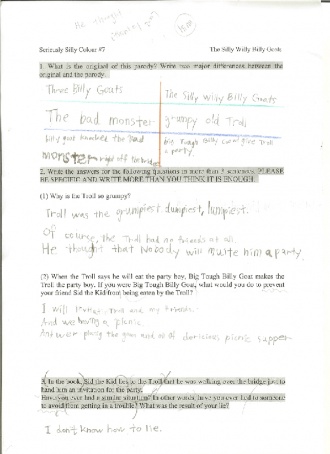 He thought
Seriously Silly Colour #7 The Silly Willy Billy Goats
1. What is the original of this parody? Write two major differences between the
original and the parody.
Three Billy Goats The Silly Willy Billy Goats
The bad monster grumpy old Troll
billy goat knocked the bad big Tough Billy Goat give Troll
monster right off the bridge a party.
2. Write the answers for the following questions in more than 3 sentences. PLEASE
BE SPECIFIC AND WRITE MORE THAN YOU THINK IT IS ENOUGH.
(1) Why is the Troll so grumpy?
Troll was the grumpiest, dumpiest, lumpiest.
Of course, the Troll had no friends at all.
He thought that Nobody will invite him a party.
(2) When the Troll says he will eat the party boy, Big Tough Billy Goat makes the
Troll the party boy. If you were Big Tough Billy Goat, what would you do to prevent
your friend Sid the Kid from being eaten by the Troll?
I will invite Troll and my friends.
And we having a picnic.
And we play the game and eat delicious picnic supper
3. In the book, Sid the Kid lies to the Troll that he was walking over the bridge just to
hand him an invitation for the party.
Have you ever had a similar situation? In other words, have you ever lied to someone
to avoid from getting in a trouble? What was the result of your lie?
I don't know how to lie.